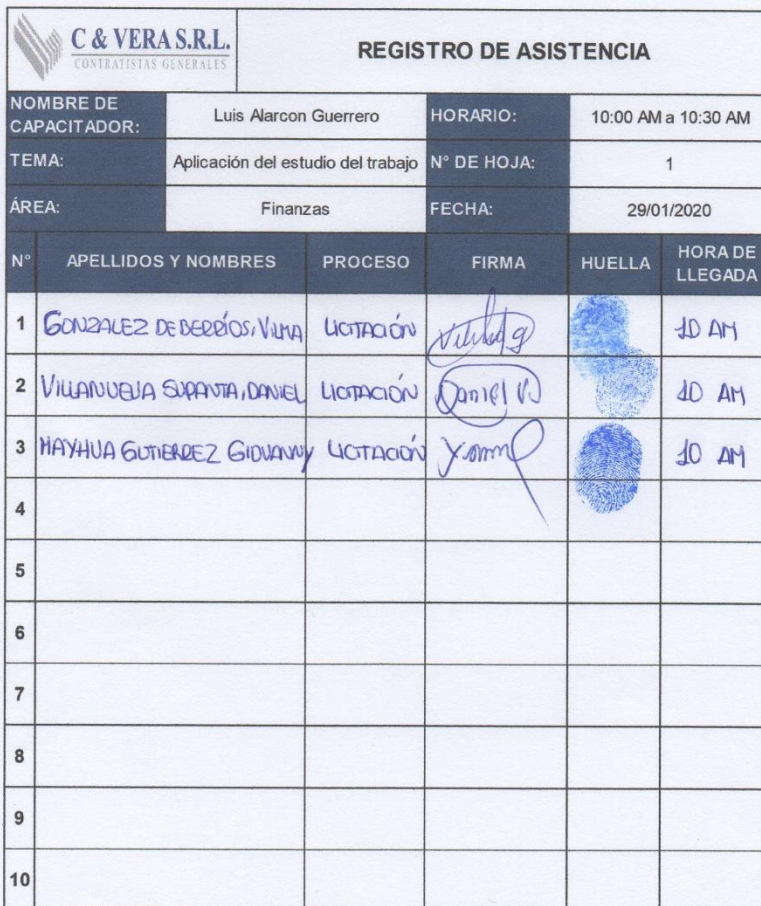 C & VERA S.R.L.
CONTRATISTAS GENERALES
REGISTRO DE ASISTENCIA
NOMBRE DE CAPACITADOR: Luis Alarcon Guerrero HORARIO: 10:00 AM a 10:30 AM
TEMA: Aplicación del estudio del trabajo N° DE HOJA: 1
ÁREA: Finanzas FECHA: 29/01/2020
N° APELLIDOS Y NOMBRES PROCESO FIRMA HUELLA HORA DE LLEGADA
1 GONZALEZ DE BERRÍOS, VILMA LICITACIÓN 10 AM
2 VILLANUEVA SUPANTA, DANIEL LICITACIÓN Daniel V 10 AM
3 MAYHUA GUTIERREZ GIOVANNY LICITACIÓN 10 AM
4
5
6
7
8
9
10